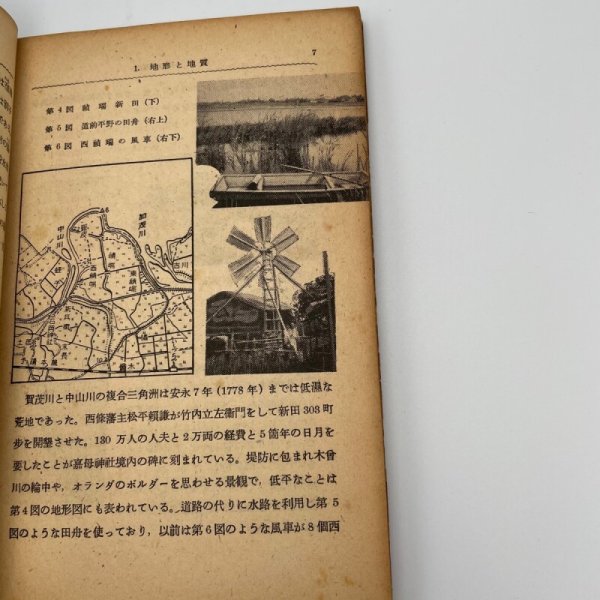 1. 地形と地質
7
第4図 禎瑞新田(下)
第5図 道前平野の田舟(右上)
第6図 西禎瑞の風車(右下)
中山川
加茂川
賀茂川と中山川の複合三角洲は安永7年(1778年)までは低濕な
荒地であった。西條藩主松平頼謙が竹内立左衛門をして新田303町
歩を開墾させた。130万人の人夫と2万両の経費と5箇年の日月を
要したことが嘉母神社境内の碑に刻まれている。堤防に包まれ木曾
川の輪中や，オランダのポルダーを思わせる景観で，低平なことは
第4図の地形図にも表われている。道路の代りに水路を利用し第5
図のような田舟を使っており，以前は第6図のような風車が8個西